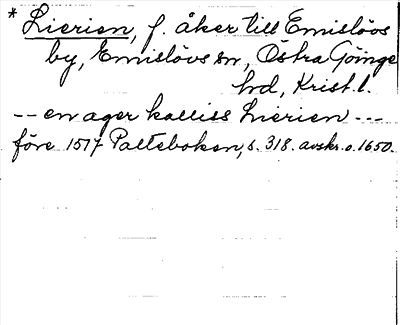 * Lierien, f. åker till Emislövs
by, Emislövs sn, Östra Göinge
hd, Krist.l.
-- en ager kalliss Lierien ---
före 1517 Palteboken, s. 318. avskr. o. 1650.